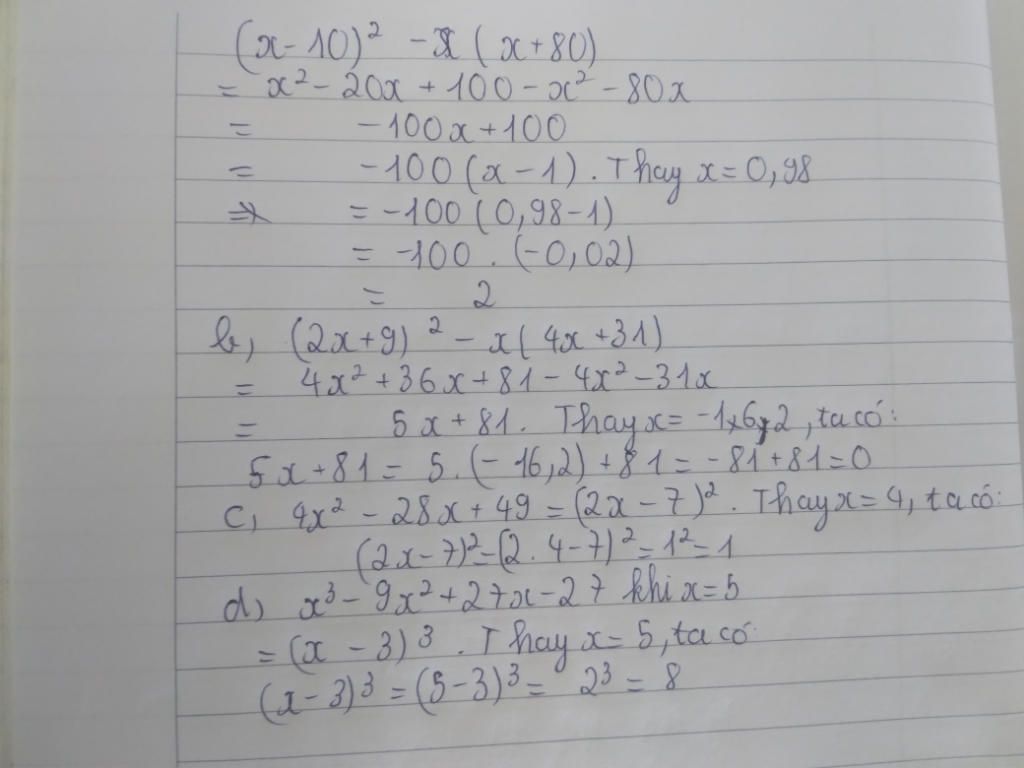 (x-10)² - x (x+80)
= x² - 20x + 100 - x² - 80x
= -100x + 100
= -100 (x-1). Thay x = 0,98
⇒ = -100 (0,98-1)
= -100 . (-0,02)
= 2
b, (2x+9)² - x (4x+31)
= 4x² + 36x + 81 - 4x² - 31x
= 5x + 81. Thay x = -16,2, ta có:
5x + 81 = 5.(-16,2) + 81 = -81 + 81 = 0
c, 4x² - 28x + 49 = (2x-7)². Thay x = 4, ta có:
(2x-7)² = (2.4-7)² = 1² = 1
d, x³ - 9x² + 27x - 27 khi x = 5
= (x-3)³. Thay x = 5, ta có:
(x-3)³ = (5-3)³ = 2³ = 8